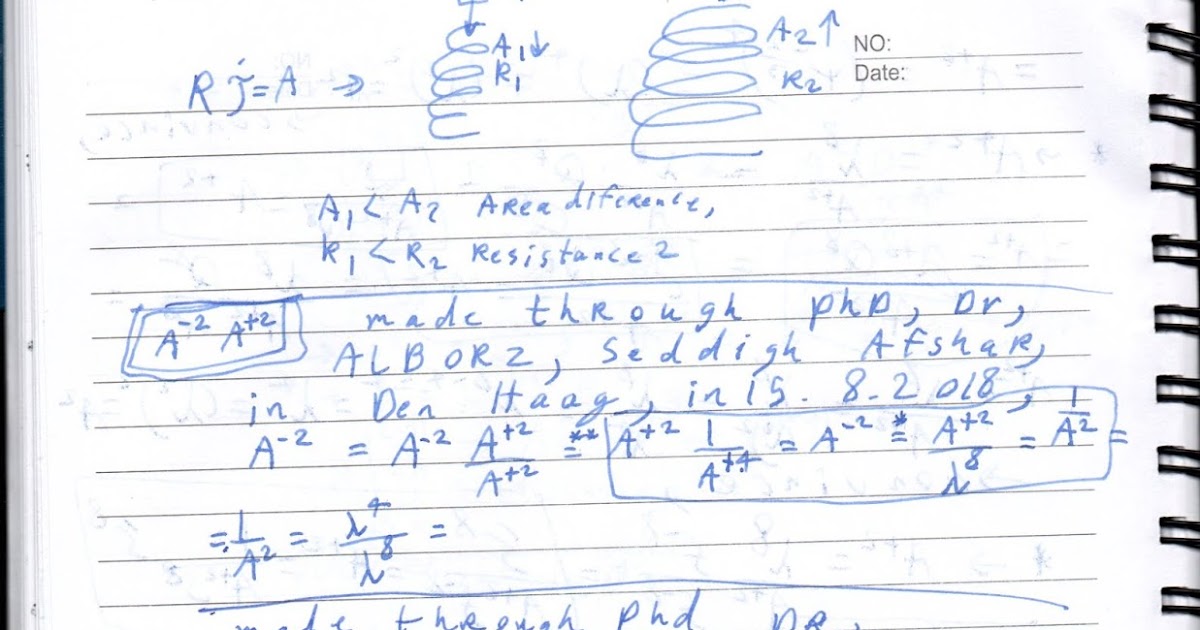 A₁↓ A₂↑ NO:
R j = A ⇒ R₁ R₂ Date:
A₁ < A₂ Area diference,
R₁ < R₂ Resistance 2
A⁻² A⁺² made through phD, Dr,
ALBORZ, Seddigh Afshar,
in Den Haag, in 15. 8. 2018,
A⁻² = A⁻² A⁺²/A⁺² =** A⁺² 1/A⁺⁴ = A⁻² =* A⁺²/λ⁸ = 1/A² =
= 1/A² = λ⁴/λ⁸ =
made through phd DR,